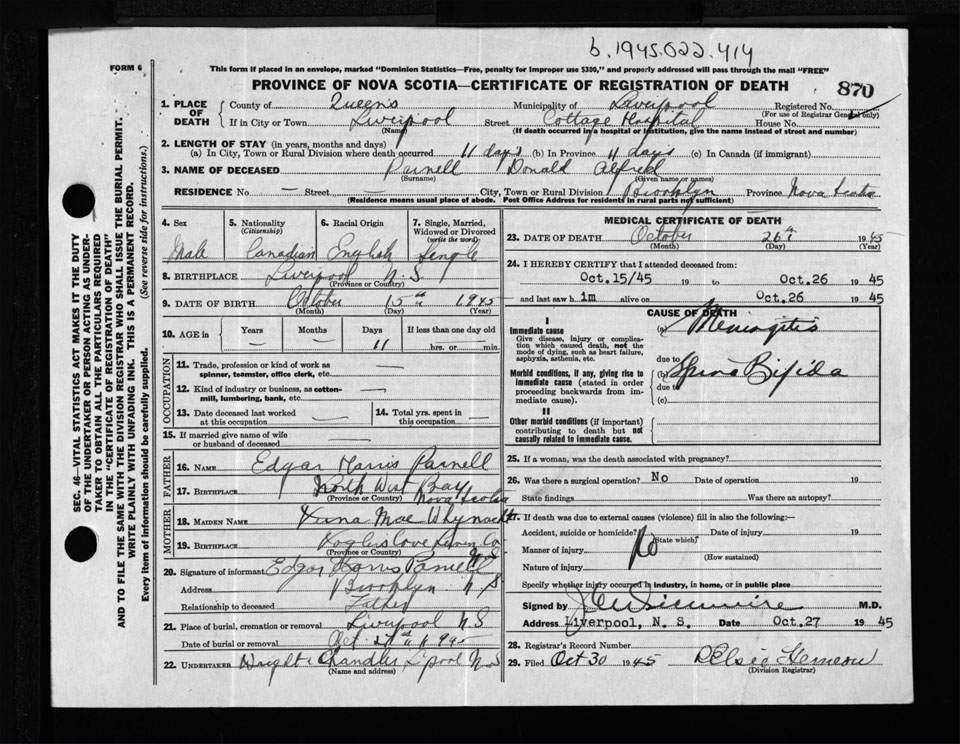 b.1945.022.414
FORM 6
This form if placed in an envelope, marked "Dominion Statistics—Free, penalty for improper use $300," and properly addressed will pass through the mail "FREE"
PROVINCE OF NOVA SCOTIA—CERTIFICATE OF REGISTRATION OF DEATH
870
1. PLACE OF DEATH
County of Queens Municipality of Liverpool Registered No.
(For use of Registrar General only)
If in City or Town Liverpool Street Cottage Hospital House No.
(Name) (If death occurred in a hospital or institution, give the name instead of street and number)
2. LENGTH OF STAY (in years, months and days)
(a) In City, Town or Rural Division where death occurred 11 days (b) In Province 11 days (c) In Canada (if immigrant)
3. NAME OF DECEASED Parnell Donald Alfred
(Surname) (Given name or names)
RESIDENCE No. — Street — City, Town or Rural Division Brooklyn Province Nova Scotia
(Residence means usual place of abode. Post Office Address for residents in rural parts not sufficient)
4. Sex 5. Nationality 6. Racial Origin 7. Single, Married,
(Citizenship) Widowed or Divorced
(write the word)
Male Canadian English Single
8. BIRTHPLACE Liverpool N.S.
(Province or Country)
9. DATE OF BIRTH October 15th 1945
(Month) (Day) (Year)
10. AGE in Years Months Days If less than one day old
— — 11 hrs. or min.
OCCUPATION
11. Trade, profession or kind of work as
spinner, teamster, office clerk, etc. —
12. Kind of industry or business, as cotton-
mill, lumbering, bank, etc. —
13. Date deceased last worked
at this occupation —
14. Total yrs. spent in
this occupation —
15. If married give name of wife
or husband of deceased —
FATHER
16. NAME Edgar Harris Parnell
17. BIRTHPLACE North West Bay
(Province or Country) Nova Scotia
MOTHER
18. MAIDEN NAME Mae Whynacht
19. BIRTHPLACE Voglers Cove Lunen Co
(Province or Country) N.S
20. Signature of informant Edgar Harris Parnell
Address Brooklyn N.S
Relationship to deceased Father
21. Place of burial, cremation or removal Liverpool N.S
Date of burial or removal Oct. 27th 1945
22. UNDERTAKER Wright & Chandler L'pool N.S
(Name and address)
MEDICAL CERTIFICATE OF DEATH
23. DATE OF DEATH October 26th 1945
(Month) (Day) (Year)
24. I HEREBY CERTIFY that I attended deceased from:
Oct.15/45 19 to Oct.26 1945
and last saw h.im alive on Oct.26 1945
CAUSE OF DEATH
I
Immediate cause
Give disease, injury or complica-
tion which caused death, not the
mode of dying, such as heart failure,
asphyxia, asthenia, etc.
(a) Meningitis
due to
Morbid conditions, if any, giving rise to
immediate cause (stated in order
proceeding backwards from im-
mediate cause).
(b) Spina Bifida
due to
(c)
II
Other morbid conditions (if important)
contributing to death but not
causally related to immediate cause.
25. If a woman, was the death associated with pregnancy?
26. Was there a surgical operation? No Date of operation 19
State findings Was there an autopsy?
27. If death was due to external causes (violence) fill in also the following:—
Accident, suicide or homicide? (State which) Date of injury 19
Manner of injury No (How sustained)
Nature of injury
Specify whether injury occurred in industry, in home, or in public place
Signed by M.D.
Address Liverpool, N. S. Date Oct.27 1945
28. Registrar's Record Number
29. Filed Oct 30 1945
(Division Registrar)
SEC. 46—VITAL STATISTICS ACT MAKES IT THE DUTY
OF THE UNDERTAKER OR PERSON ACTING AS UNDER-
TAKER TO OBTAIN ALL THE PARTICULARS REQUIRED
IN THE "CERTIFICATE OF REGISTRATION OF DEATH"
AND TO FILE THE SAME WITH THE DIVISION REGISTRAR WHO SHALL ISSUE THE BURIAL PERMIT.
WRITE PLAINLY WITH UNFADING INK. THIS IS A PERMANENT RECORD.
Every item of information should be carefully supplied. (See reverse side for instructions.)